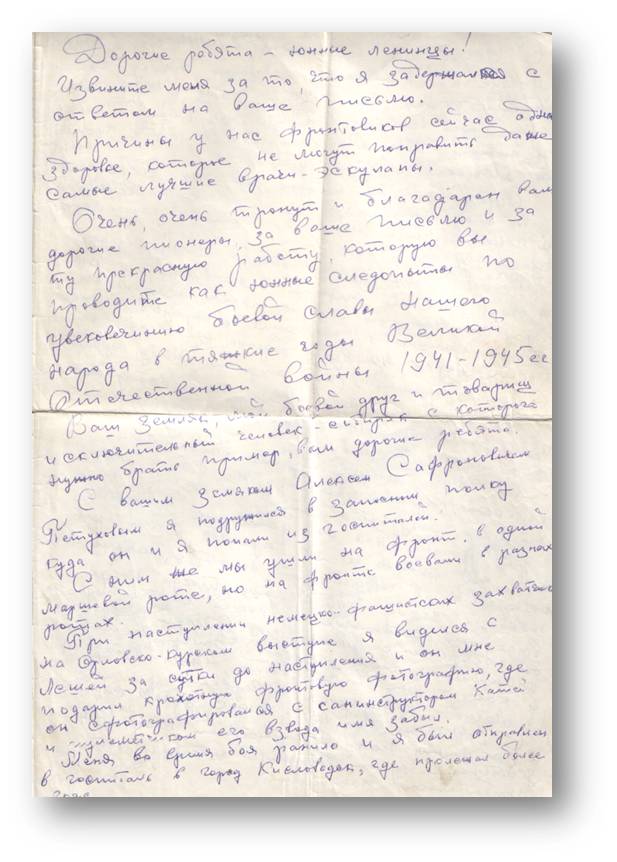 Дорогие ребята - юнные ленинцы!
Извините меня за то, что я задержался с
ответом на ваше письмо.
Причины у нас фронтовиков сейчас одна
здоровье, которое не могут поправить даже
самые лучшие врачи-эскулапы.
Очень, очень тронут и благодарен вам
дорогие пионеры, за ваше письмо и за
ту прекрасную работу, которую вы
проводите как юнные следопыты по
увековечинию боевой славы нашего
народа в тяжкие годы Великой
Отечественной войны 1941-1945гг
Ваш земляк, мой боевой друг и товарищ
исключительный человек - сибиряк с которого
нужно брать пример, вам дорогие ребята.
С вашим земляком Алексеем Сафроновичем
Петуховым я подружился в запасном полку
куда он и я попали из госпиталей.
С ним же мы ушли на фронт, в одной
маршевой роте, но на фронте воевали в разных
ротах.
При наступлении немецко-фашистских захватчиков
на Орловско-курском выступе я виделся с
Лешей за сутки до наступления и он мне
подарил крохотную фронтовую фотографию, где
он сфотографировался с санинструктором Катей
и его взвода имя забыл.
Меня во время боя ранило и я был отправлен
в госпиталь в город Кисловодск, где пролежал более